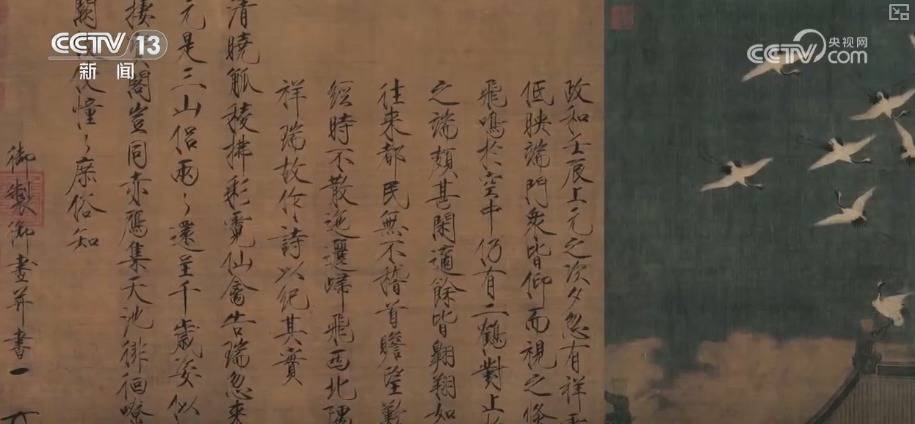 CCTV 13
新闻
CCTV 央视网
com
政和壬辰上元之次夕忽有祥
低映端門衆皆仰而視之倏
飛鳴於空中仍有二鶴對止
之端頗甚閑適餘皆翱翔如
往来都民無不稽首瞻望歎
經時不散迤邐歸飛西北隅
祥瑞故作詩以紀其實
清曉觚稜拂彩霓仙禽告瑞忽来
元是三山侶兩〻還呈千歲姿似
棲閣豈同赤鴈集天池徘徊嘹
闕憧〻庶俗知
御製御畫并書